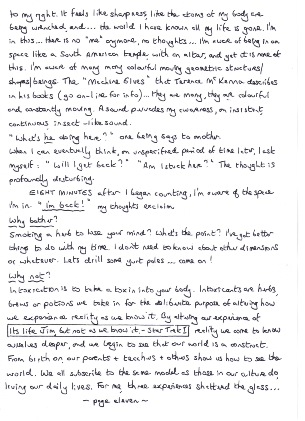 to my right. It feels like sharpness like the atoms of my body are
being wrenched and.... the world I have known all my life is gone. I'm
in this... there is no "me" anymore, no thoughts... I'm aware of being in an
space like a South American temple with an altar, and yet it is none of
this. I'm aware of many many colourful moving geometric structures/
shapes/beings. The "Machine Elves" that Terence McKenna describes
in his books (go on-line for info)... They are many, they are colourful
and constantly moving. A sound pervades my awareness, an insistent
continuous insect-like sound.
"What's he doing here?" one being says to another.
When I can eventually think, an unspecified period of time later, I ask
myself: "Will I get back?" "Am I stuck here?" The thought is
profoundly disturbing.
EIGHT MINUTES after I began counting, I'm aware of the space
I'm in. "I'm back!" my thoughts exclaim.
Why bother?
Smoking a herb to lose your mind? What's the point? I've got better
things to do with my time. I don't need to know about other dimensions
or whatever. Lets drill some yurt poles... come on!
Why not?
Intoxication is to take a toxin into your body. Intoxicants are herbs,
brews or potions we take in for the deliberate purpose of altering how
we experience reality as we know it. By altering our experience of
Its life Jim but not as we know it - Star Trek reality we come to know
ourselves deeper, and we begin to see that our world is a construct.
From birth on, our parents + teachers + others show us how to see the
world. We all subscribe to the same model as those in our culture do,
living our daily lives. For me, these experiences shattered the glass...
- page eleven -